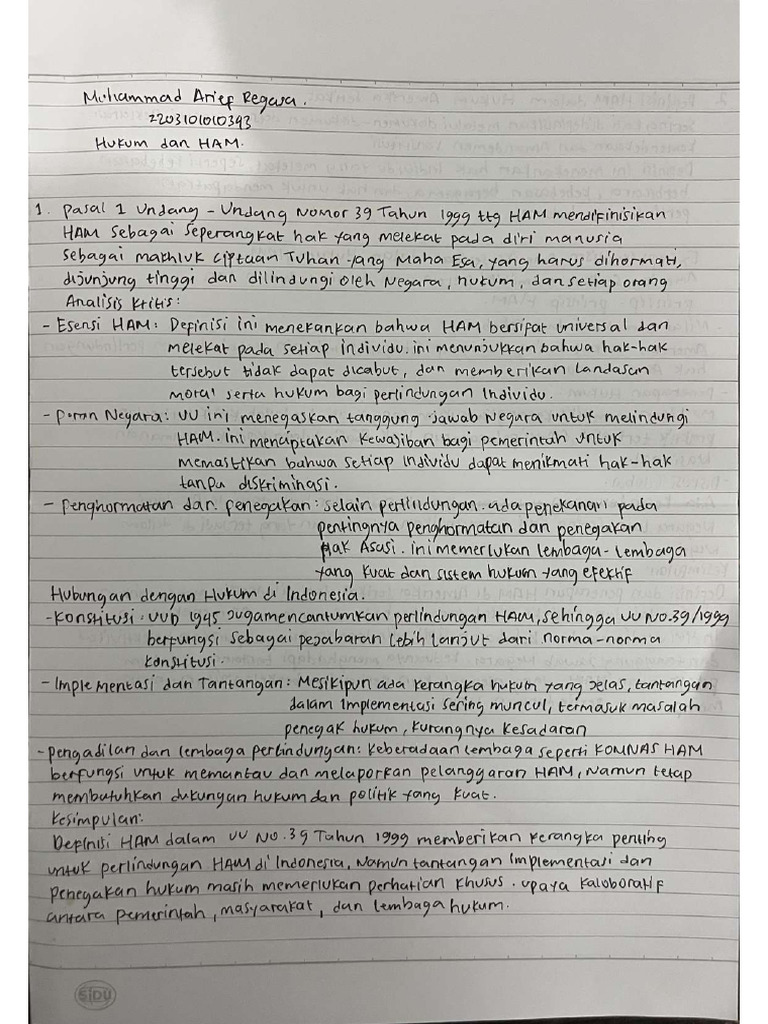 Muhammad Arief Regara.
2203101010393
Hukum dan HAM.
1. Pasal 1 Undang - Undang Nomor 39 Tahun 1999 ttg HAM mendifinisikan
HAM sebagai seperangkat hak yang melekat pada diri manusia
sebagai makhluk ciptaan Tuhan yang Maha Esa, yang harus dihormati,
dijunjung tinggi dan dilindungi oleh Negara, hukum, dan setiap orang
Analisis kritis:
- Esensi HAM: Definisi ini menekankan bahwa HAM bersifat universal dan
melekat pada setiap individu. ini menunjukkan bahwa hak-hak
tersebut tidak dapat dicabut, dan memberikan landasan
moral serta hukum bagi perlindungan Individu.
- Peran Negara: UU ini menegaskan tanggung jawab Negara untuk melindungi
HAM. ini menciptakan kewajiban bagi pemerintah untuk
memastikan bahwa setiap individu dapat menikmati hak-hak
tanpa diskriminasi.
- Penghormatan dan penegakan: selain perlindungan. ada penekanan pada
pentingnya penghormatan dan penegakan
Hak Asasi. ini memerlukan lembaga-lembaga
yang kuat dan sistem hukum yang efektif
Hubungan dengan Hukum di Indonesia.
- Konstitusi. UUD 1945 juga mencantumkan perlindungan HAM, sehingga UU NO.39/1999
berfungsi sebagai pejabaran lebih lanjut dari norma-norma
konstitusi.
- Implementasi dan Tantangan: Mesikipun ada kerangka hukum yang jelas, tantangan
dalam implementasi sering muncul, termasuk masalah
penegak hukum, kurangnya kesadaran
- pengadilan dan lembaga perlindungan: keberadaan lembaga seperti KOMNAS HAM
berfungsi untuk memantau dan melaporkan pelanggaran HAM, Namun tetap
membutuhkan dukungan hukum dan politik yang kuat.
Kesimpulan:
Definisi HAM dalam UU NO.39 Tahun 1999 memberikan kerangka penting
untuk perlindungan HAM di Indonesia, Namun tantangan implementasi dan
penegakan hukum masih memerlukan perhatian khusus. upaya kaloboratif
antara pemerintah, masyarakat, dan lembaga hukum.
SIDU